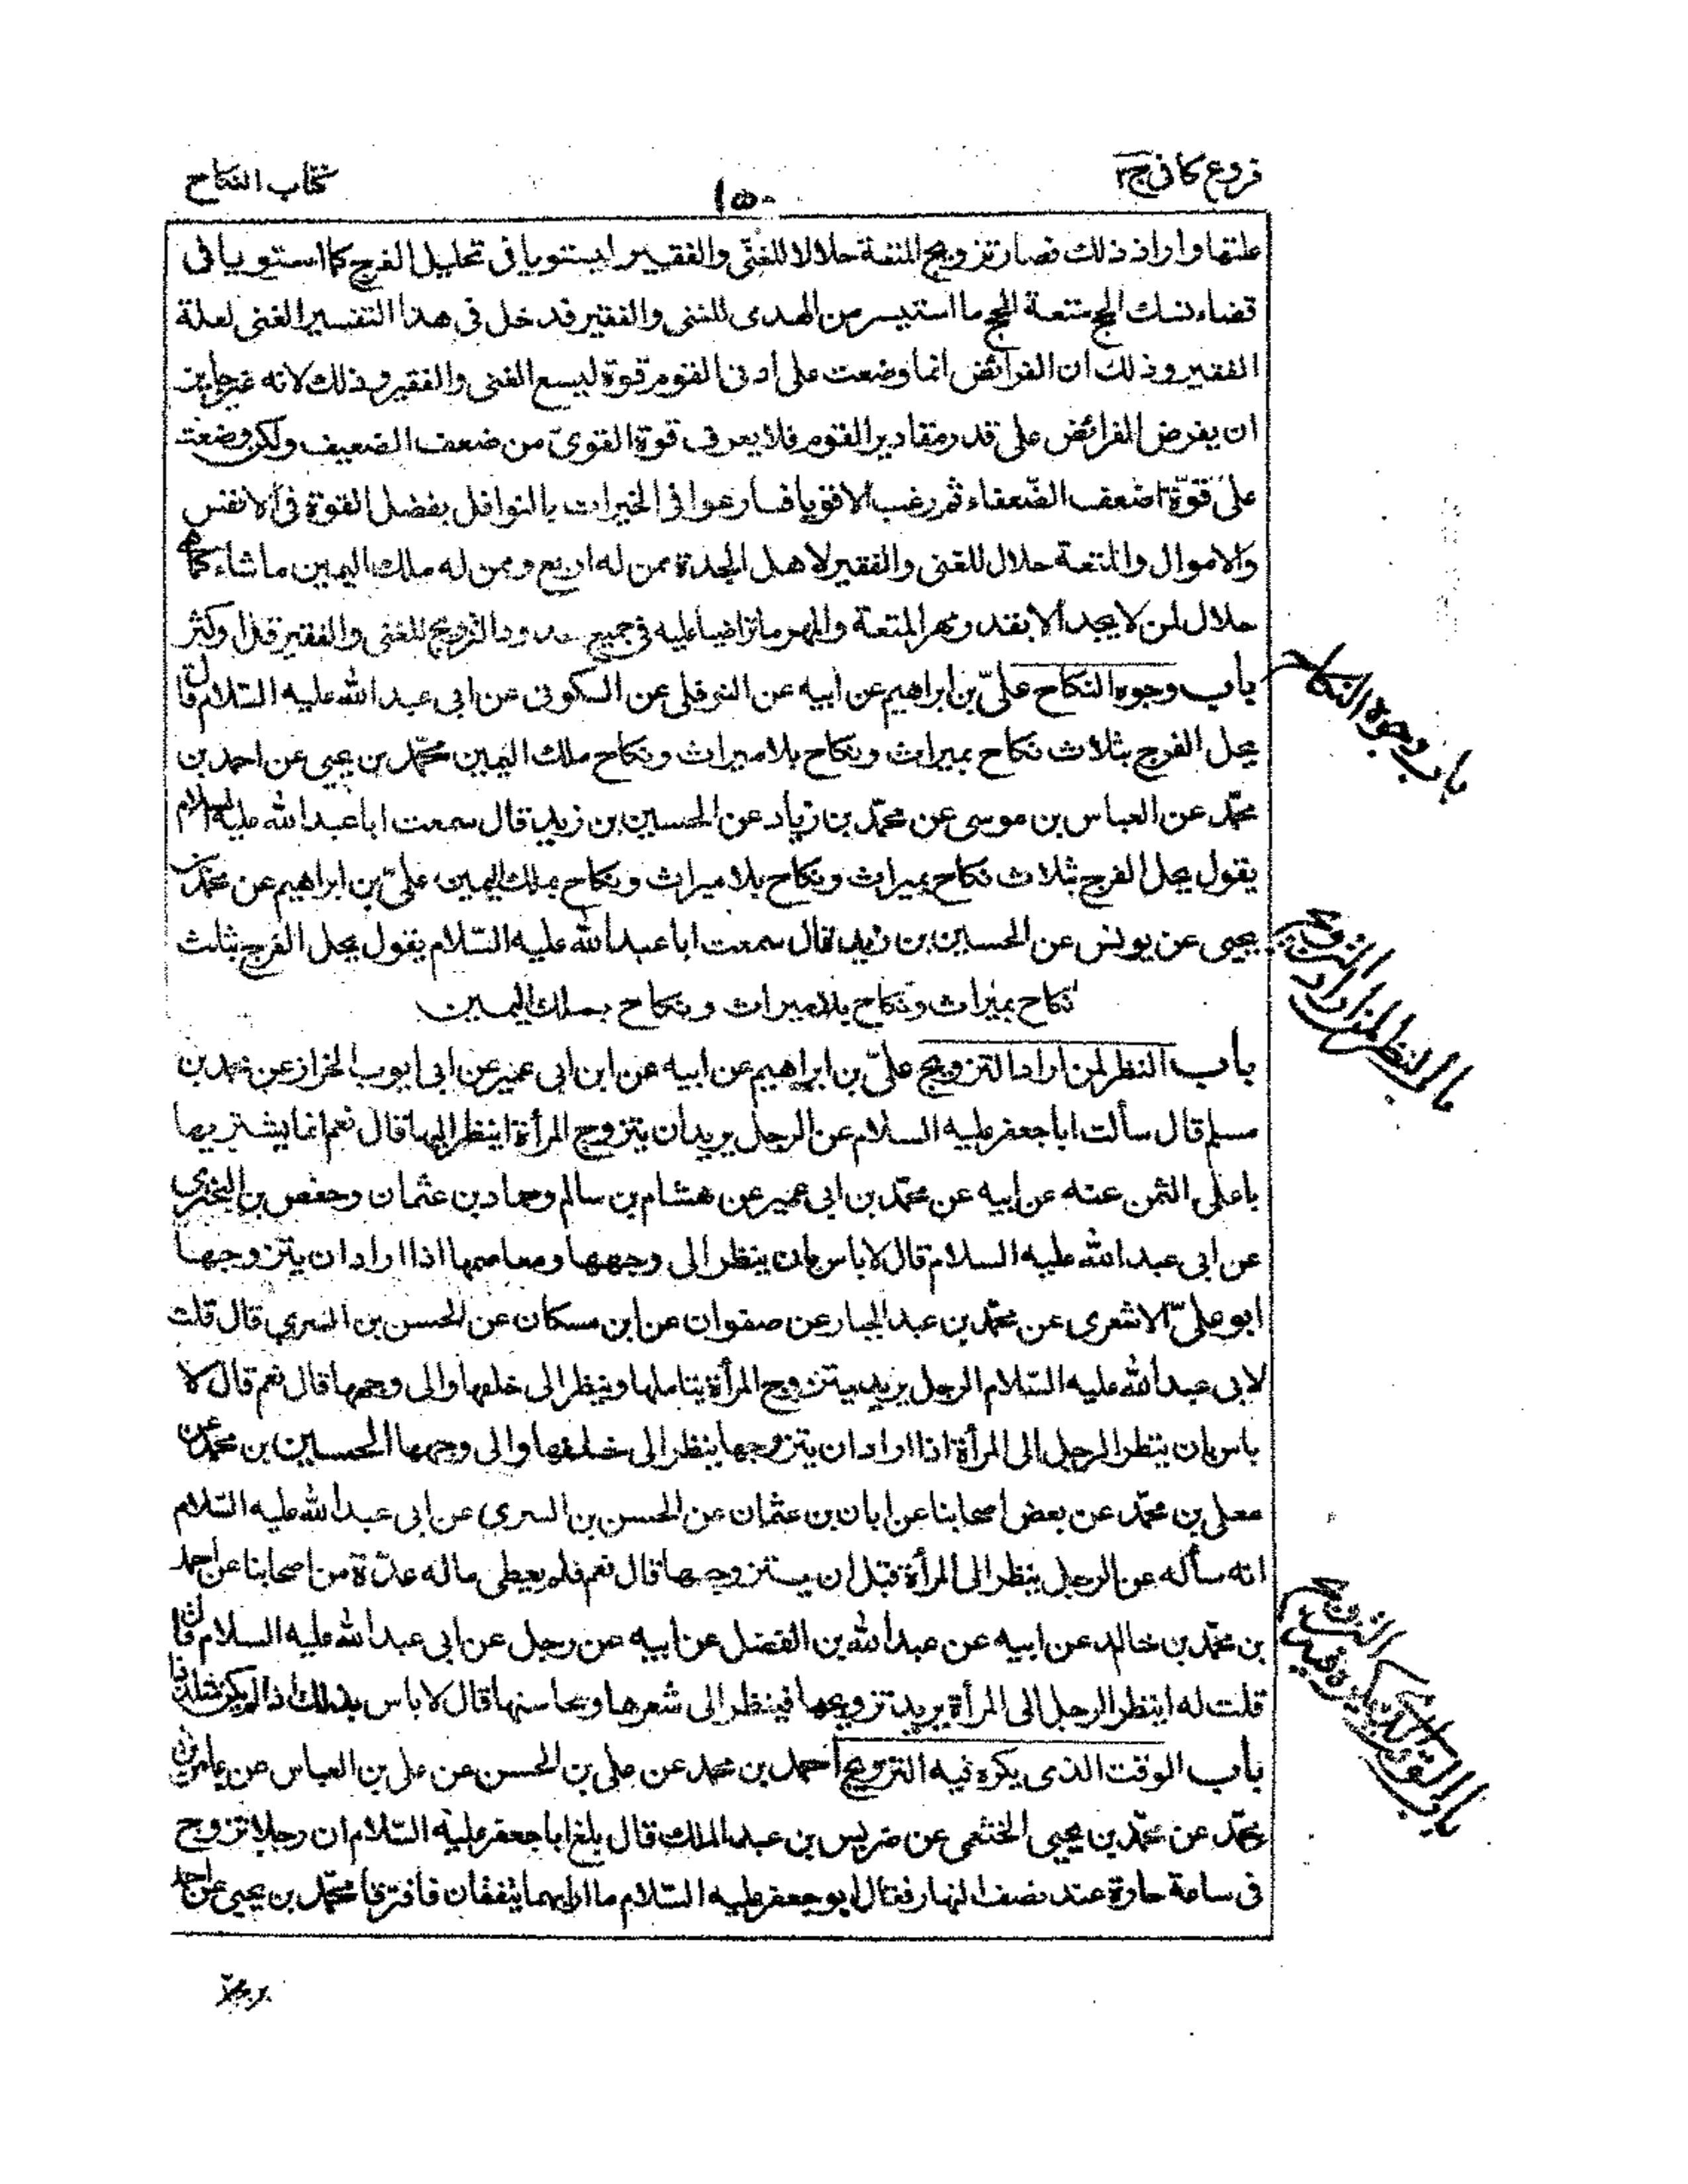 فروع كافى ج٢
١٥٠
كتاب النكاح
علتها واراد ذلك فصار تزويج المتعة حلالا للغنّى والفقير ليستويا فى تحليل الفرج كما استويا فى
قضاء نسك الحج متعة الحج ما استيسر من الهدى للغنى والفقير فدخل فى هذا التفسير الغنى لعلة
الفقير وذلك ان الفرائض انما وضعت على ادنى القوم قوة ليسع الغنى والفقير وذلك لانه غير جايز
ان يفرض الفرائض على قدر مقادير القوم فلا يعرف قوة القوىّ من ضعف الضعيف ولكن وضعت
على قوّة اضعف الضّعفاء ثم رغب الاقويا فسارعوا فى الخيرات بالنوافل بفضل القوة فى الانفس
والاموال والمتعة حلال للغنى والفقير لاهل الجدة ممن له اربع وممن له ملك اليمين ما شاء كما هى
حلال لمن لا يجد الا بقدر مهر المتعة والمهر ما تراضيا عليه فى جميع حدود التزويج للغنى والفقير قل او كثر
باب وجوه النكاح علىّ بن ابراهيم عن ابيه عن النوفلى عن السكونى عن ابى عبد الله عليه السّلام قال
يحل الفرج بثلاث نكاح بميراث ونكاح بلا ميراث ونكاح ملك اليمين محمّد بن يحيى عن احمد بن
محمّد عن العباس بن موسى عن محمّد بن زياد عن الحسين بن زيد قال سمعت ابا عبد الله عليه السلام
يقول يحل الفرج بثلاث نكاح بميراث ونكاح بلا ميراث ونكاح بملك اليمين علىّ بن ابراهيم عن محمد بن
يحيى عن يونس عن الحسين بن زيد قال سمعت ابا عبد الله عليه السّلام يقول يحل الفرج بثلث
نكاح بميراث ونكاح بلا ميراث ونكاح بملك اليمين
باب النظر لمن اراد التزويج علىّ بن ابراهيم عن ابيه عن ابن ابى عمير عن ابى ايوب الخزاز عن محمد بن
مسلم قال سألت ابا جعفر عليه السلام عن الرجل يريد ان يتزوج المرأة اينظر اليها قال نعم انما يشتريها
باعلى الثمن عنه عن ابيه عن محمّد بن ابى عمير عن هشام بن سالم وحماد بن عثمان وحفص بن البخترى
عن ابى عبد الله عليه السلام قال لا باس بان ينظر الى وجهها ومعاصمها اذا اراد ان يتزوجها
ابو علىّ الاشعرى عن محمّد بن عبد الجبار عن صفوان عن ابن مسكان عن الحسن بن السرى قال قلت
لابى عبد الله عليه السّلام الرجل يريد يتزوج المرأة يتاملها وينظر الى خلفها والى وجهها قال نعم قال لا
باس بان ينظر الرجل الى المرأة اذا اراد ان يتزوجها ينظر الى خلفها والى وجهها الحسين بن محمد عن
معلى بن محمّد عن بعض اصحابنا عن ابان بن عثمان عن الحسن بن السرى عن ابى عبد الله عليه السّلام
انه سأله عن الرجل ينظر الى المرأة قبل ان يتزوجها قال نعم فلم يعطى ماله عدّة من اصحابنا عن احمد
بن محمّد بن خالد عن ابيه عن عبد الله بن الفضل عن ابيه عن رجل عن ابى عبد الله عليه السلام قال
قلت له اينظر الرجل الى المرأة يريد تزويجها فينظر الى شعرها ومحاسنها قال لا باس بذلك اذا لم يكن متلذذا
باب الوقت الذى يكره فيه التزويج احمد بن محمد عن على بن الحسن عن على بن العباس عن
محمّد عن محمّد بن يحيى الخثعمى عن ضريس بن عبد الملك قال بلغ ابا جعفر عليه السّلام ان رجلا تزوج
فى ساعة حارة عند نصف النهار فقال ابو جعفر عليه السّلام ما اراهما يتفقان فافترقا محمّد بن يحيى عن احمد
بن محمّد
باب وجوه النكاح
باب النظر لمن اراد التزويج
باب الوقت الذى يكره فيه التزويج